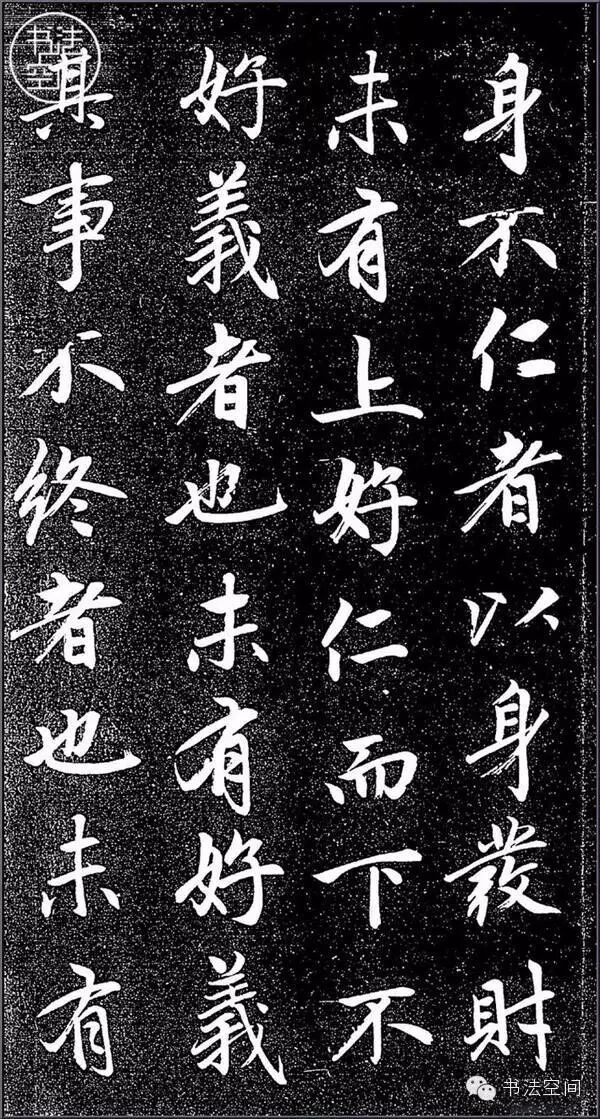 身不仁者以身發財
未有上好仁而下不
好義者也未有好義
其事不終者也未有
书法空间
书法空间